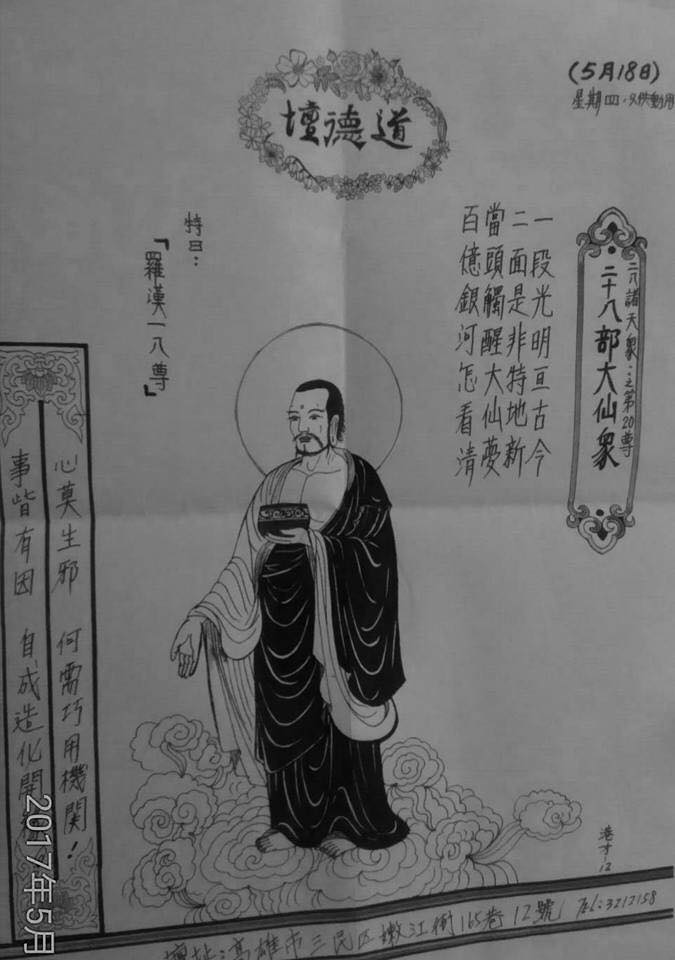 (5月18日)
星期四
道德壇
二八諸天衆:之第20尊
二十八部大仙衆
一段光明亘古今
二面是非特地新
當頭觸醒大仙夢
百億銀河怎看清
特曰:
「羅漢一八尊」
心莫生邪 何需巧用機關!
事皆有因 自成造化開
壇址:高雄市三民区嫩江街165巷12號 TEL:3212158
2017年5月